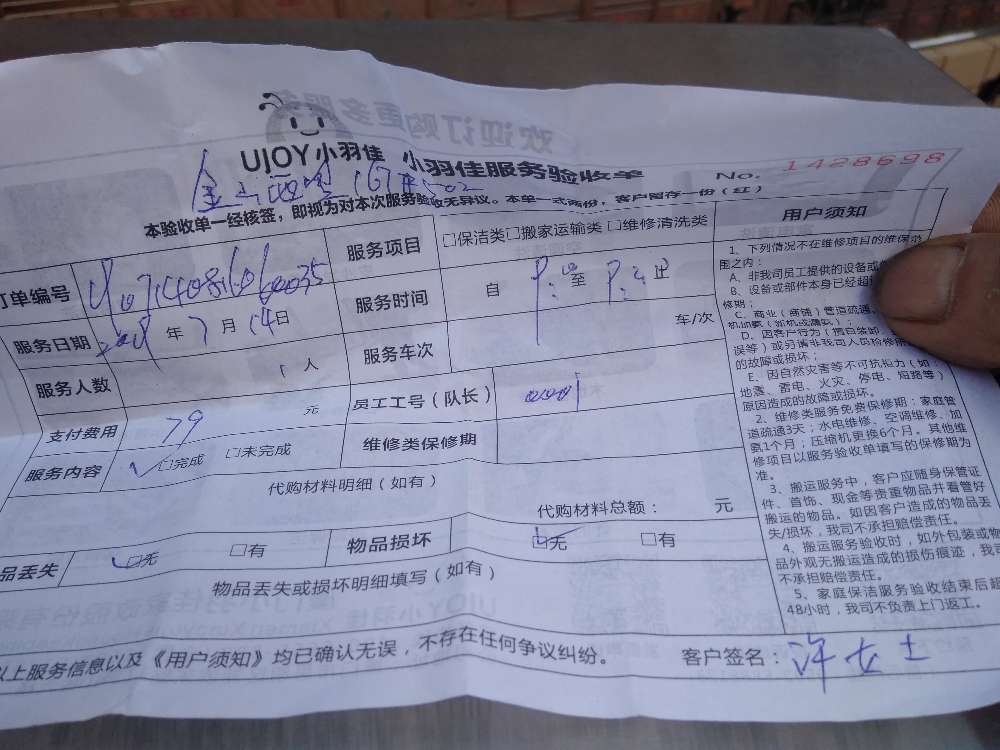 UJOY小羽佳 小羽佳服务验收单 No. 1428698
本验收单一经核签，即视为对本次服务验收无异议。本单一式两份，客户留存一份（红）
订单编号
服务项目 □保洁类□搬家运输类 □维修清洗类
服务日期 年 7 月 14日
服务时间 自 至
服务人数 1 人
服务车次 车/次
支付费用 79 元
员工工号（队长）
服务内容 □完成 □未完成
维修类保修期
代购材料明细（如有）
代购材料总额： 元
品丢失 □无 □有 物品损坏 □无 □有
物品丢失或损坏明细填写（如有）
以上服务信息以及《用户须知》均已确认无误，不存在任何争议纠纷。
客户签名：许女士
用户须知
1、下列情况不在维修项目的维保范
围之内：
A、非我司员工提供的设备或
B、设备或部件本身已经超
修期；
C、商业（商铺）管道疏通、
的故障或损坏；
E、因自然灾害等不可抗拒力（如
地震、雷电、火灾、停电、短路等）
原因造成的故障或损坏。
2、维修类服务免费保修期：家庭管
道疏通3天；水电维修、空调维修、加
氨1个月；压缩机更换6个月。其他维
修项目以服务验收单填写的保修期为
准。
3、搬运服务中，客户应随身保管证
件、首饰、现金等贵重物品并看管好
搬运的物品。如因客户造成的物品丢
失/损坏，我司不承担赔偿责任。
4、搬运服务验收时，如外包装或物
品外观无搬运造成的损伤痕迹，我司
不承担赔偿责任。
5、家庭保洁服务验收结束后超
48小时，我司不负责上门返工。